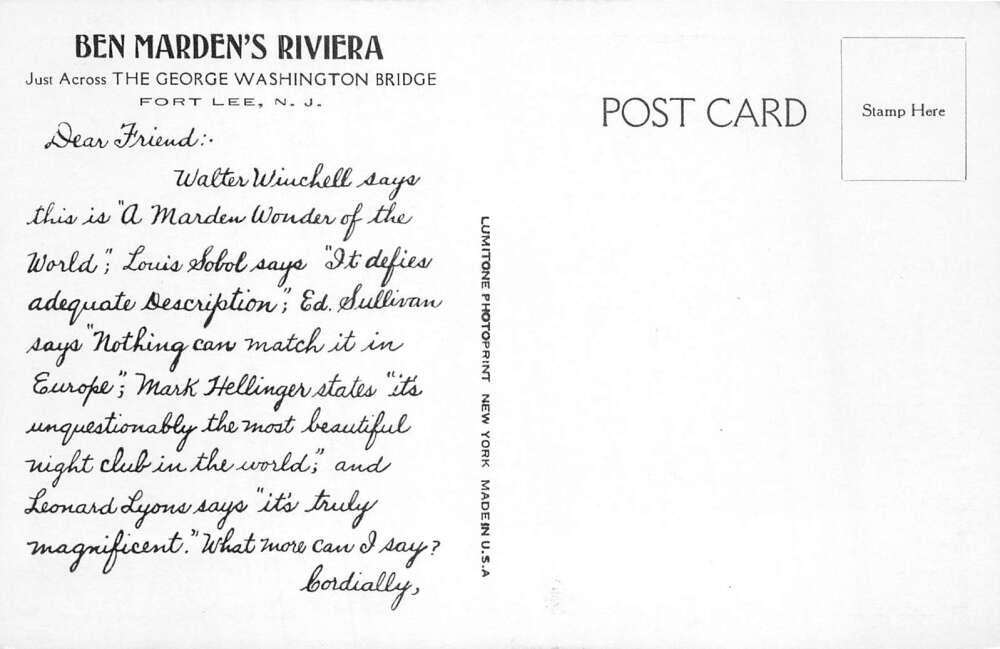 BEN MARDEN'S RIVIERA
Just Across THE GEORGE WASHINGTON BRIDGE
FORT LEE, N. J.
Dear Friend:-
Walter Winchell says
this is "A Marden Wonder of the
World"; Louis Sobol says "It defies
adequate Description"; Ed. Sullivan
says "Nothing can match it in
Europe"; Mark Hellinger states "it's
unquestionably the most beautiful
night club in the world;" and
Leonard Lyons says "it's truly
magnificent." What more can I say?
Cordially,
LUMITONE PHOTOPRINT NEW YORK MADE IN U.S.A
POST CARD
Stamp Here